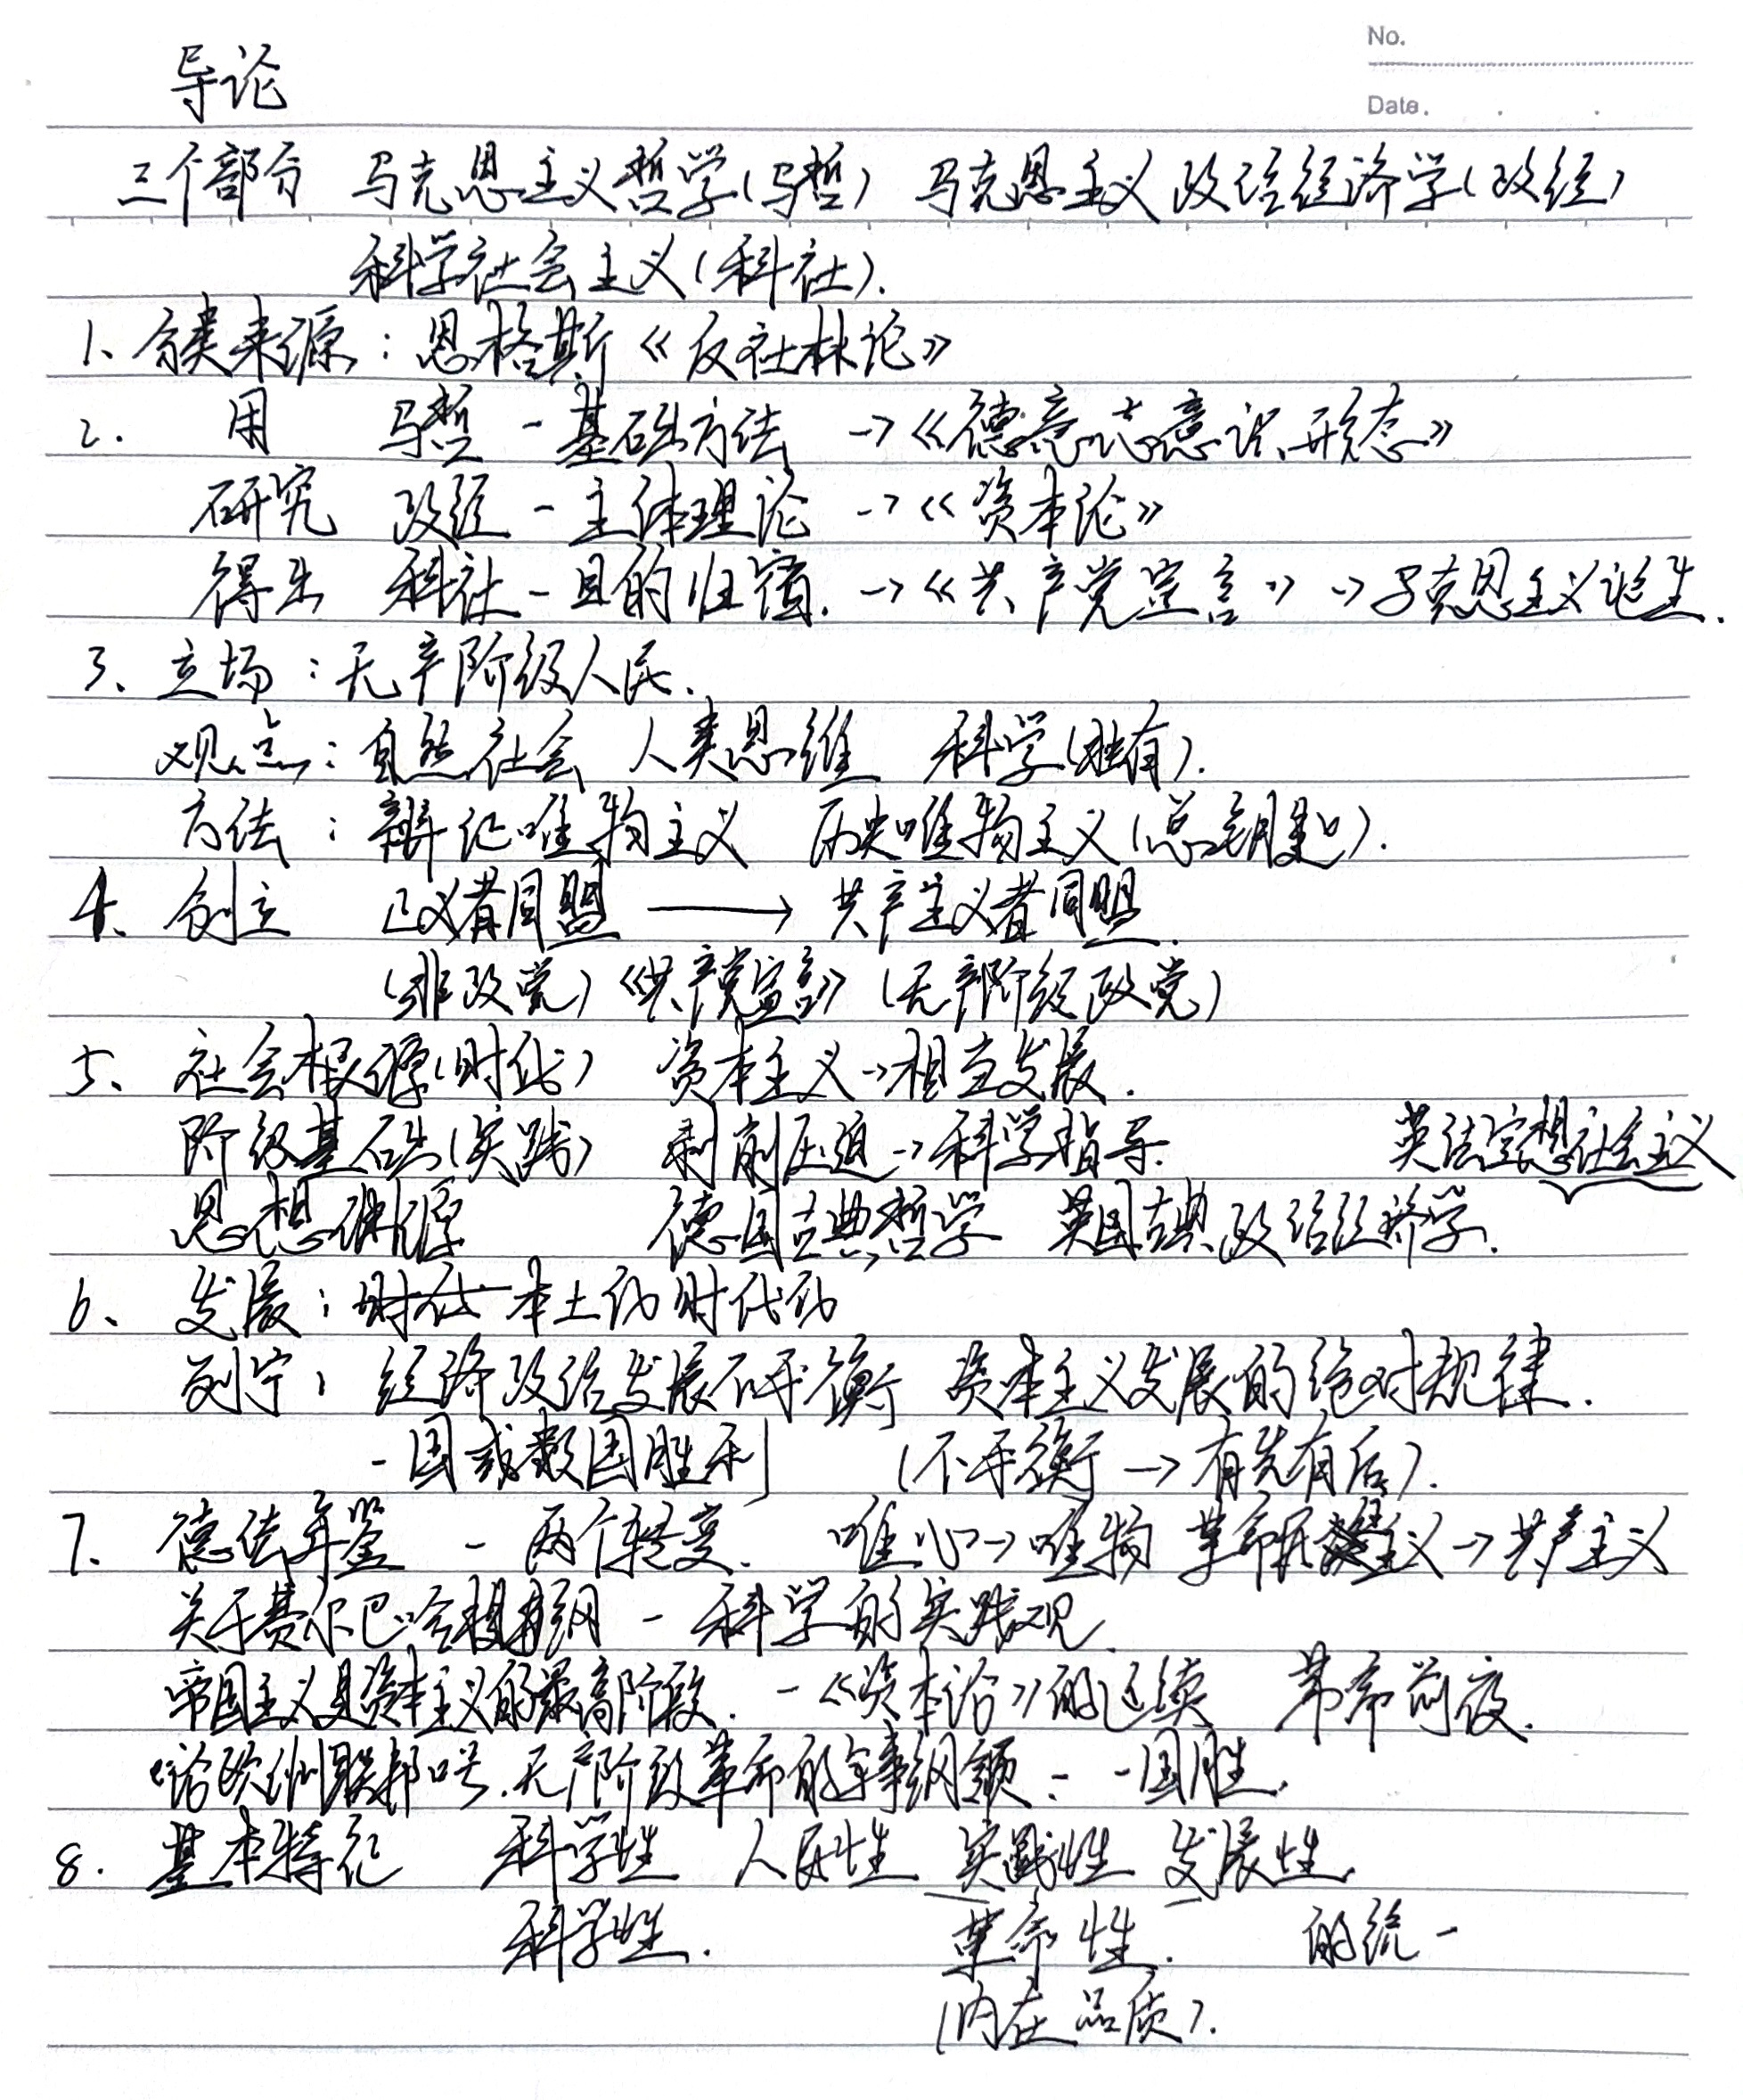 No.
Date.
导论
三个部分 马克思主义哲学(马哲) 马克思主义政治经济学(政经)
科学社会主义(科社).
1、分类来源:恩格斯《反杜林论》
2. 用 马哲 - 基础方法 →《德意志意识形态》
研究 政经 - 主体理论 →《资本论》
得出 科社 - 目的归宿. →《共产党宣言》→马克思主义诞生.
3、立场:无产阶级人民.
观点:自然社会 人类思维 科学(独有).
方法:辩证唯物主义 历史唯物主义(总钥匙).
4、创立 正义者同盟 → 共产主义者同盟.
(非政党)《共产党宣言》(无产阶级政党)
5、社会根源(时代) 资本主义→相当发展.
阶级基础(实践) 剥削压迫→科学指导. 英法空想社会主义
思想渊源 德国古典哲学 英国古典政治经济学.
6、发展:时代 本土化时代化
列宁: 经济政治发展不平衡 资本主义发展的绝对规律.
一国或数国胜利 (不平衡→有先有后).
7、德法年鉴 - 两个转变. 唯心→唯物 革命民主主义→共产主义
关于费尔巴哈提纲 - 科学的实践观.
帝国主义是资本主义的最高阶段. -《资本论》的延续 革命前夜.
论欧洲联邦口号.无产阶级革命的军事纲领 - 一国胜.
8. 基本特征 科学性 人民性 实践性 发展性.
科学性. 革命性. 的统一
(内在品质).